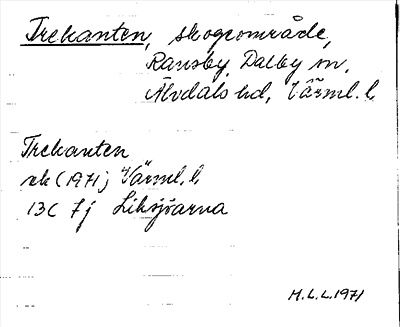 Trekanten, skogsområde,
Ransby, Dalby sn,
Älvdals hd, Värml. l.
Trekanten
ek (1971) Värml. l.
13C 7j Liksjöarna
H.L.L. 1971